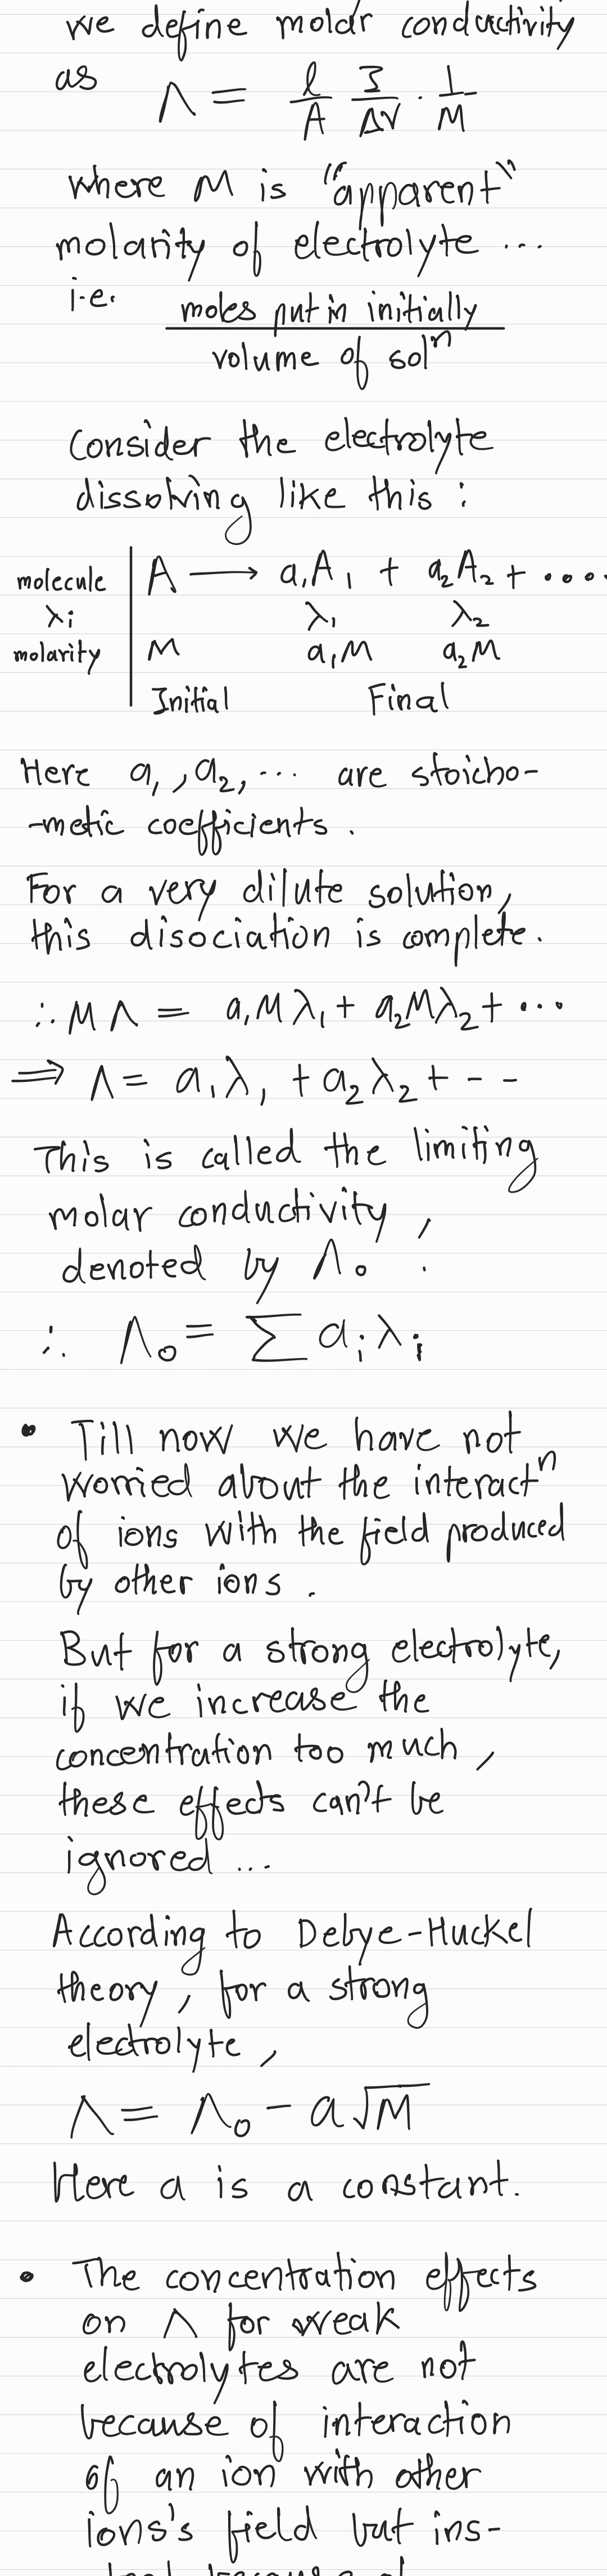 we define molar conductivity
as Λ = l/A I/ΔV · 1/M
where M is "apparent"
molarity of electrolyte ...
i.e. moles put in initially
volume of solⁿ
Consider the electrolyte
dissolving like this :
molecule | A ⟶ a₁A₁ + a₂A₂ + ....
λᵢ | λ₁ λ₂
molarity | M a₁M a₂M
Initial Final
Here a₁, a₂, ... are stoicho-
-metic coefficients.
For a very dilute solution,
this disociation is complete.
∴ MΛ = a₁Mλ₁ + a₂Mλ₂ + ...
⟹ Λ = a₁λ₁ + a₂λ₂ + - -
This is called the limiting
molar conductivity,
denoted by Λ₀ .
∴ Λ₀ = ∑ aᵢλᵢ
• Till now we have not
worried about the interactⁿ
of ions with the field produced
by other ions .
But for a strong electrolyte,
if we increase the
concentration too much,
these effects can't be
ignored ...
According to Debye-Huckel
theory, for a strong
electrolyte,
Λ = Λ₀ - a√M
Here a is a constant.
• The concentration effects
on Λ for weak
electrolytes are not
because of interaction
of an ion with other
ions's field but ins-